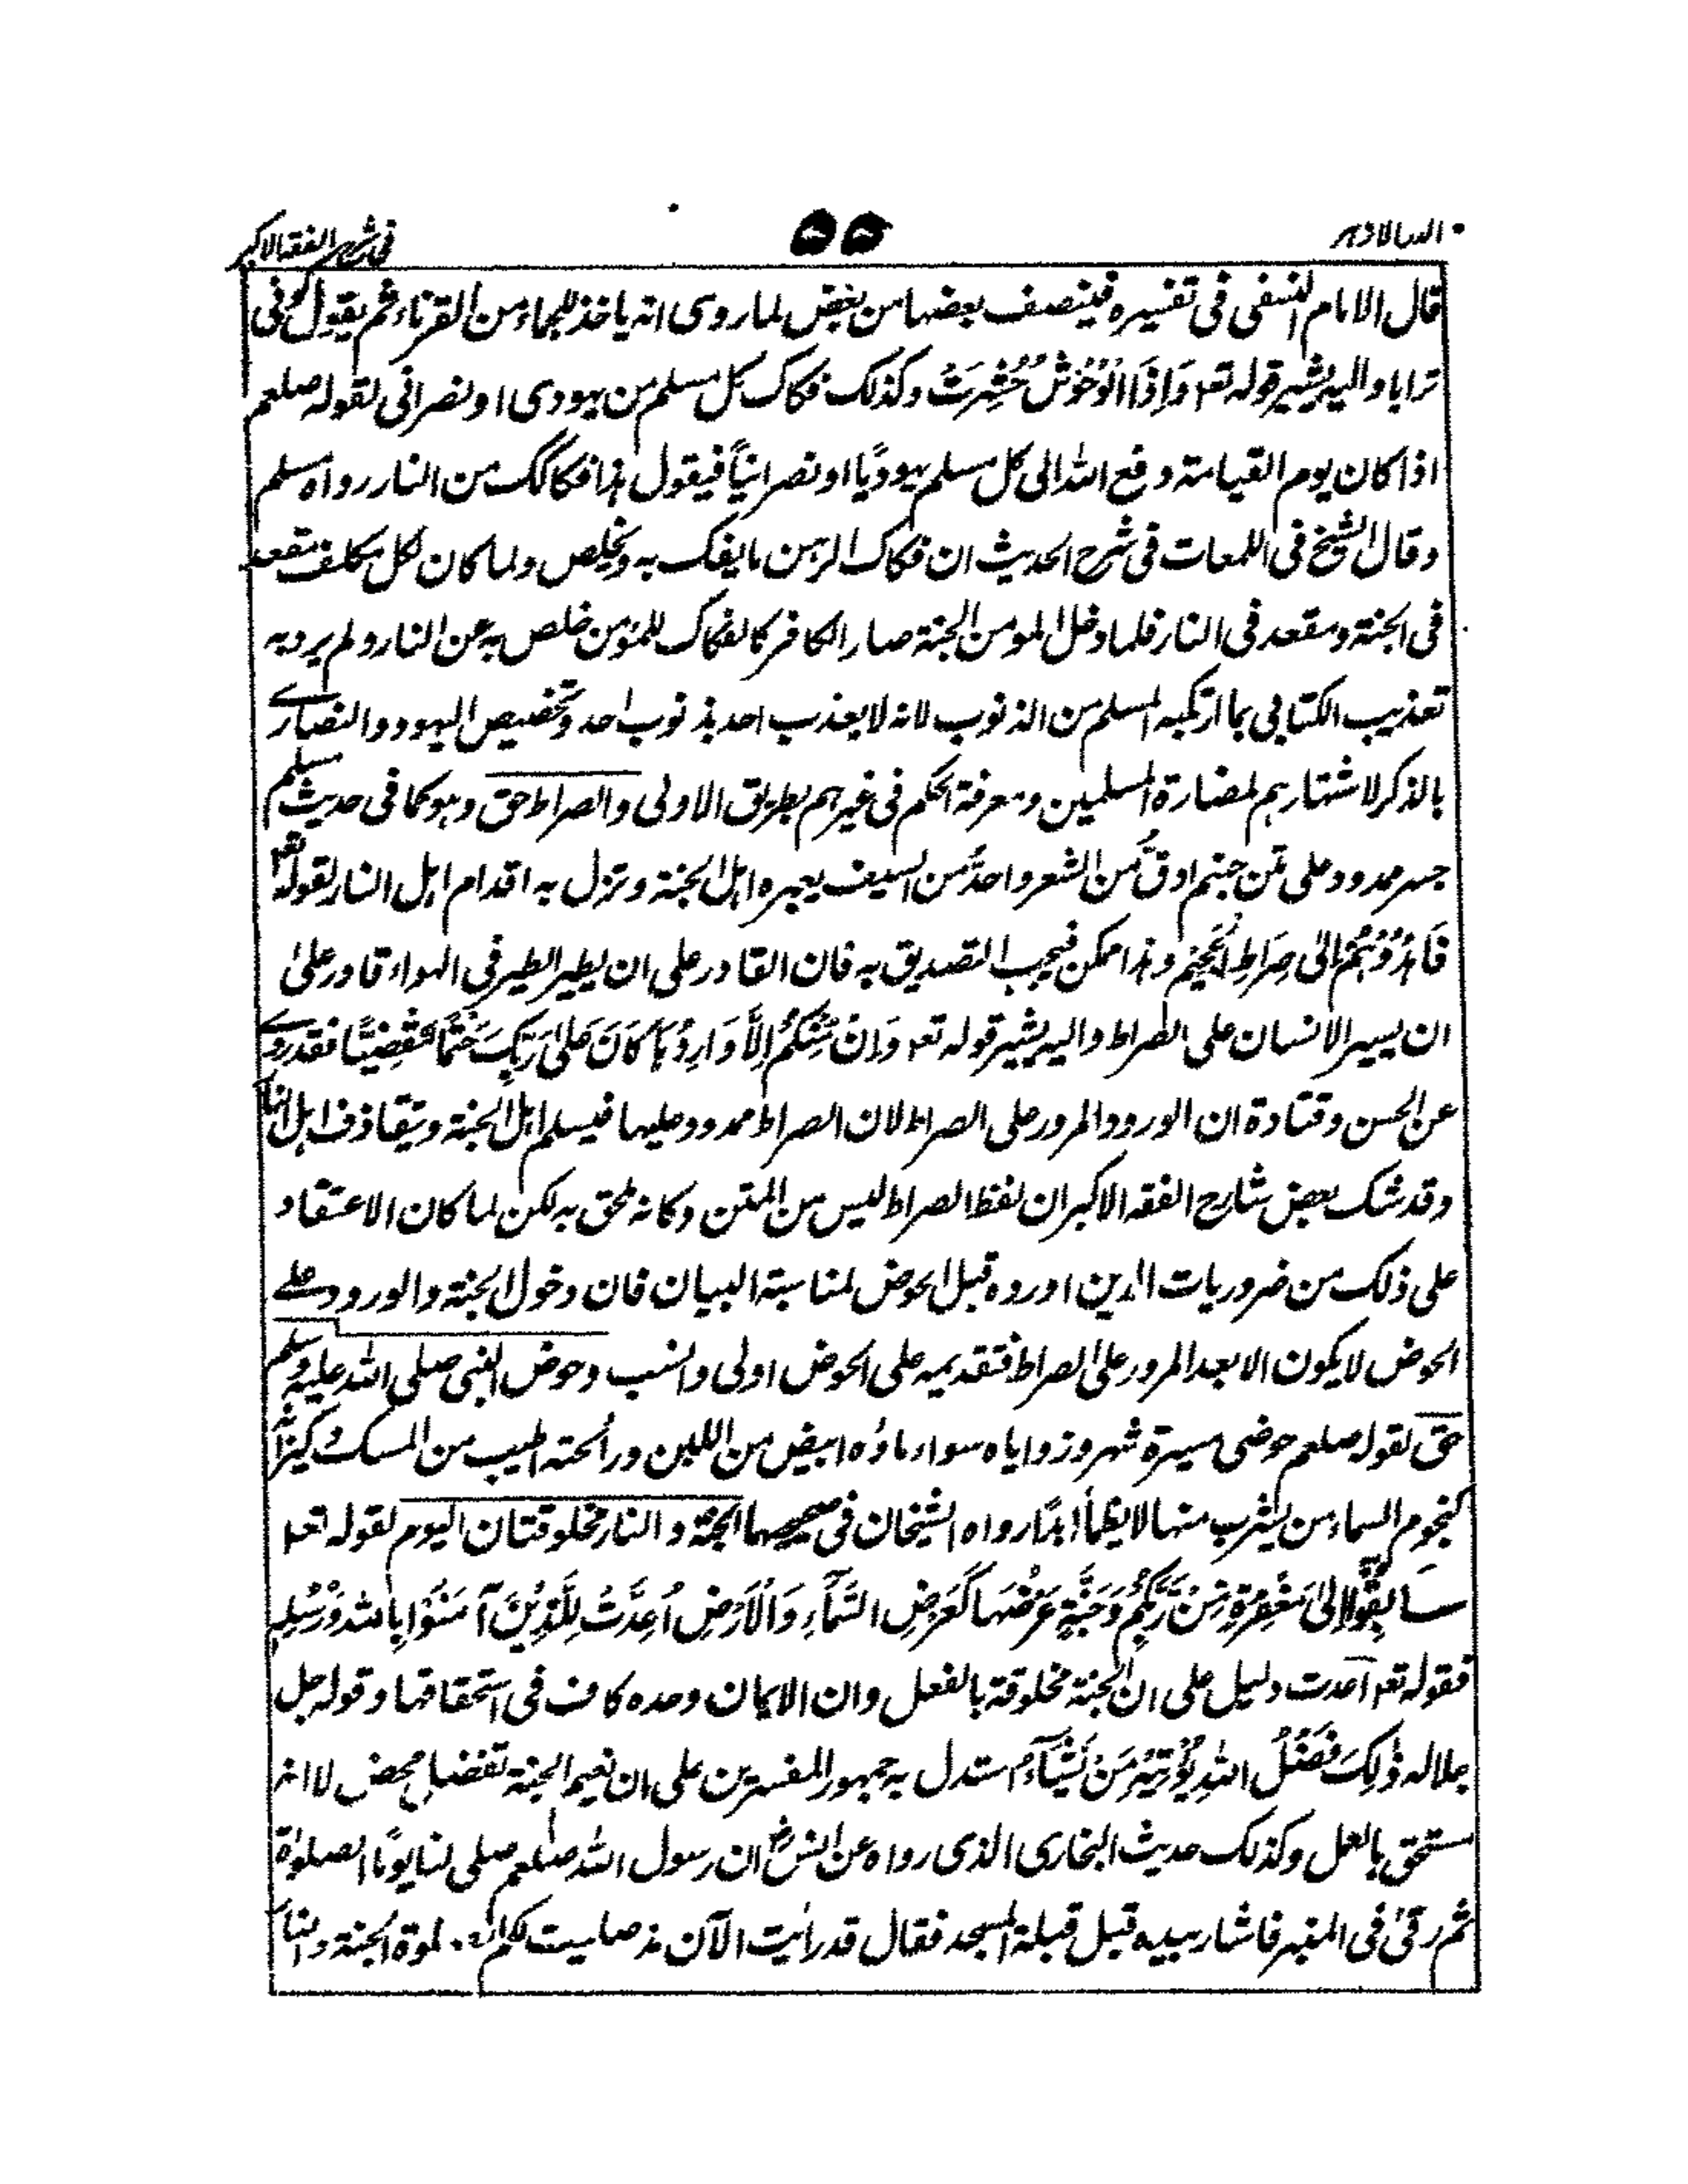 الدر الازهر ۵۵ فی شرح الفقه الاکبر
قال الامام النسفی فی تفسیره فینصف بعضها من بعض لما روی انه یاخذ للجماء من القرناء ثم یقول کونی
ترابا والیه یشیر قوله تعم وَاِذَا الْوُحُوْشُ حُشِرَتْ وکذلک فکاک کل مسلم من یهودی او نصرانی لقوله صلعم
اذا کان یوم القیامة دفع الله الی کل مسلم یهودیًا او نصرانیاً فیقول هذا فکاکک من النار رواه مسلم
وقال الشیخ فی اللمعات فی شرح الحدیث ان فکاک الرهن ما یفک به ویخلص ولما کان لکل مکلف مقعد
فی الجنة ومقعد فی النار فلما دخل المومن الجنة صار الکافر کالفکاک للمؤمن خلص به عن النار ولم یرد به
تعذیب الکتابی بما ارتکبه المسلم من الذنوب لانه لا یعذب احد بذنوب احد وتخصیص الیهود والنصارے
بالذکر لاشتهارهم لمضارة المسلمین ومعرفة الحکم فی غیرهم بطریق الاولی والصراط حق وهو کما فی حدیث مسلم
جسر ممدود علی متن جهنم ادقُّ من الشعر واحدُّ من السیف یعبره اهل الجنة وتزل به اقدام اهل النار لقوله تعم
فَاهْدُوْهُمْ اِلٰی صِرَاطِ الْجَحِیْمِ وهذا ممکن فیجب التصدیق به فان القادر علی ان یطیر الطیر فی الهواء قادر علیٰ
ان یسیر الانسان علی الصراط والیه یشیر قوله تعم وَاِنْ مِّنْکُمْ اِلَّا وَارِدُهَا کَانَ عَلیٰ رَبِّکَ حَتْمًا مَّقْضِیًّا فقد روے
عن الحسن وقتادة ان الورود المرور علی الصراط لان الصراط ممدود علیها فیسلم اهل الجنة ویتقاذف اهل النار
وقد شک بعض شارح الفقه الاکبر ان لفظ الصراط لیس من المتن وکانه لحق به لکن لما کان الاعتقاد
علی ذلک من ضروریات الدین اورده قبل الحوض لمناسبة البیان فان دخول الجنة والورود علے
الحوض لا یکون الا بعد المرور علیٰ الصراط فتقدیمه علی الحوض اولی وانسب وحوض النبی صلی الله علیه وسلم
حق لقوله صلعم حوضی مسیرة شهر وزوایاه سواء ماؤه ابیض من اللبن ورائحته اطیب من المسک کیزانه
کنجوم السماء من یشرب منها لا یظمأ ابدًا رواه الشیخان فی صحیحهما الجنة والنار مخلوقتان الیوم لقوله تعم
سَابِقُوْا اِلیٰ مَغْفِرَةٍ مِّنْ رَّبِّکُمْ وَجَنَّةٍ عَرْضُهَا کَعَرْضِ السَّمَآءِ وَالْاَرْضِ اُعِدَّتْ لِلَّذِیْنَ آمَنُوْا بِاللهِ وَرُسُلِهٖ
فقوله تعم اعدت دلیل علی ان الجنة مخلوقة بالفعل وان الایمان وحده کاف فی استحقاقها وقوله جل
جلاله ذٰلِکَ فَضْلُ اللهِ یُؤْتِیْهِ مَنْ یَّشَآءُ استدل به جمهور المفسرین علی ان نعیم الجنة تفضل محض لا انه
مستحق بالعمل وکذلک حدیث البخاری الذی رواه عن انس ان رسول الله صلعم صلی لنا یومًا الصلوٰة
ثم رقیٰ فی المنبر فاشار بیدیه قبل قبلة المسجد فقال قد رأیت الآن مذ صلیت لکم الصلوة الجنة والنار